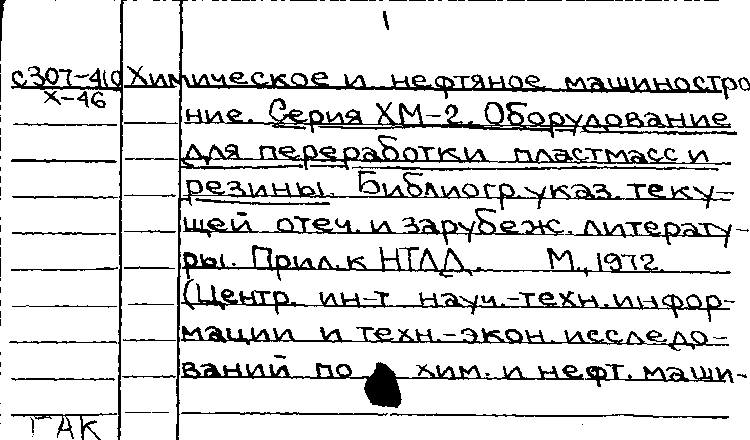 1
с307-410 Химическое и нефтяное машиностро
Х-46
ние. Серия ХМ-2. Оборудование
для переработки пластмасс и
резины. Библиогр. указ. теку-
щей отеч. и зарубеж. литерату-
ры. Прил. к НТЛД. М., 1972.
(Центр. ин-т науч.-техн. инфор-
мации и техн.-экон. исследо-
ваний по хим. и нефт. маши-
ГАК